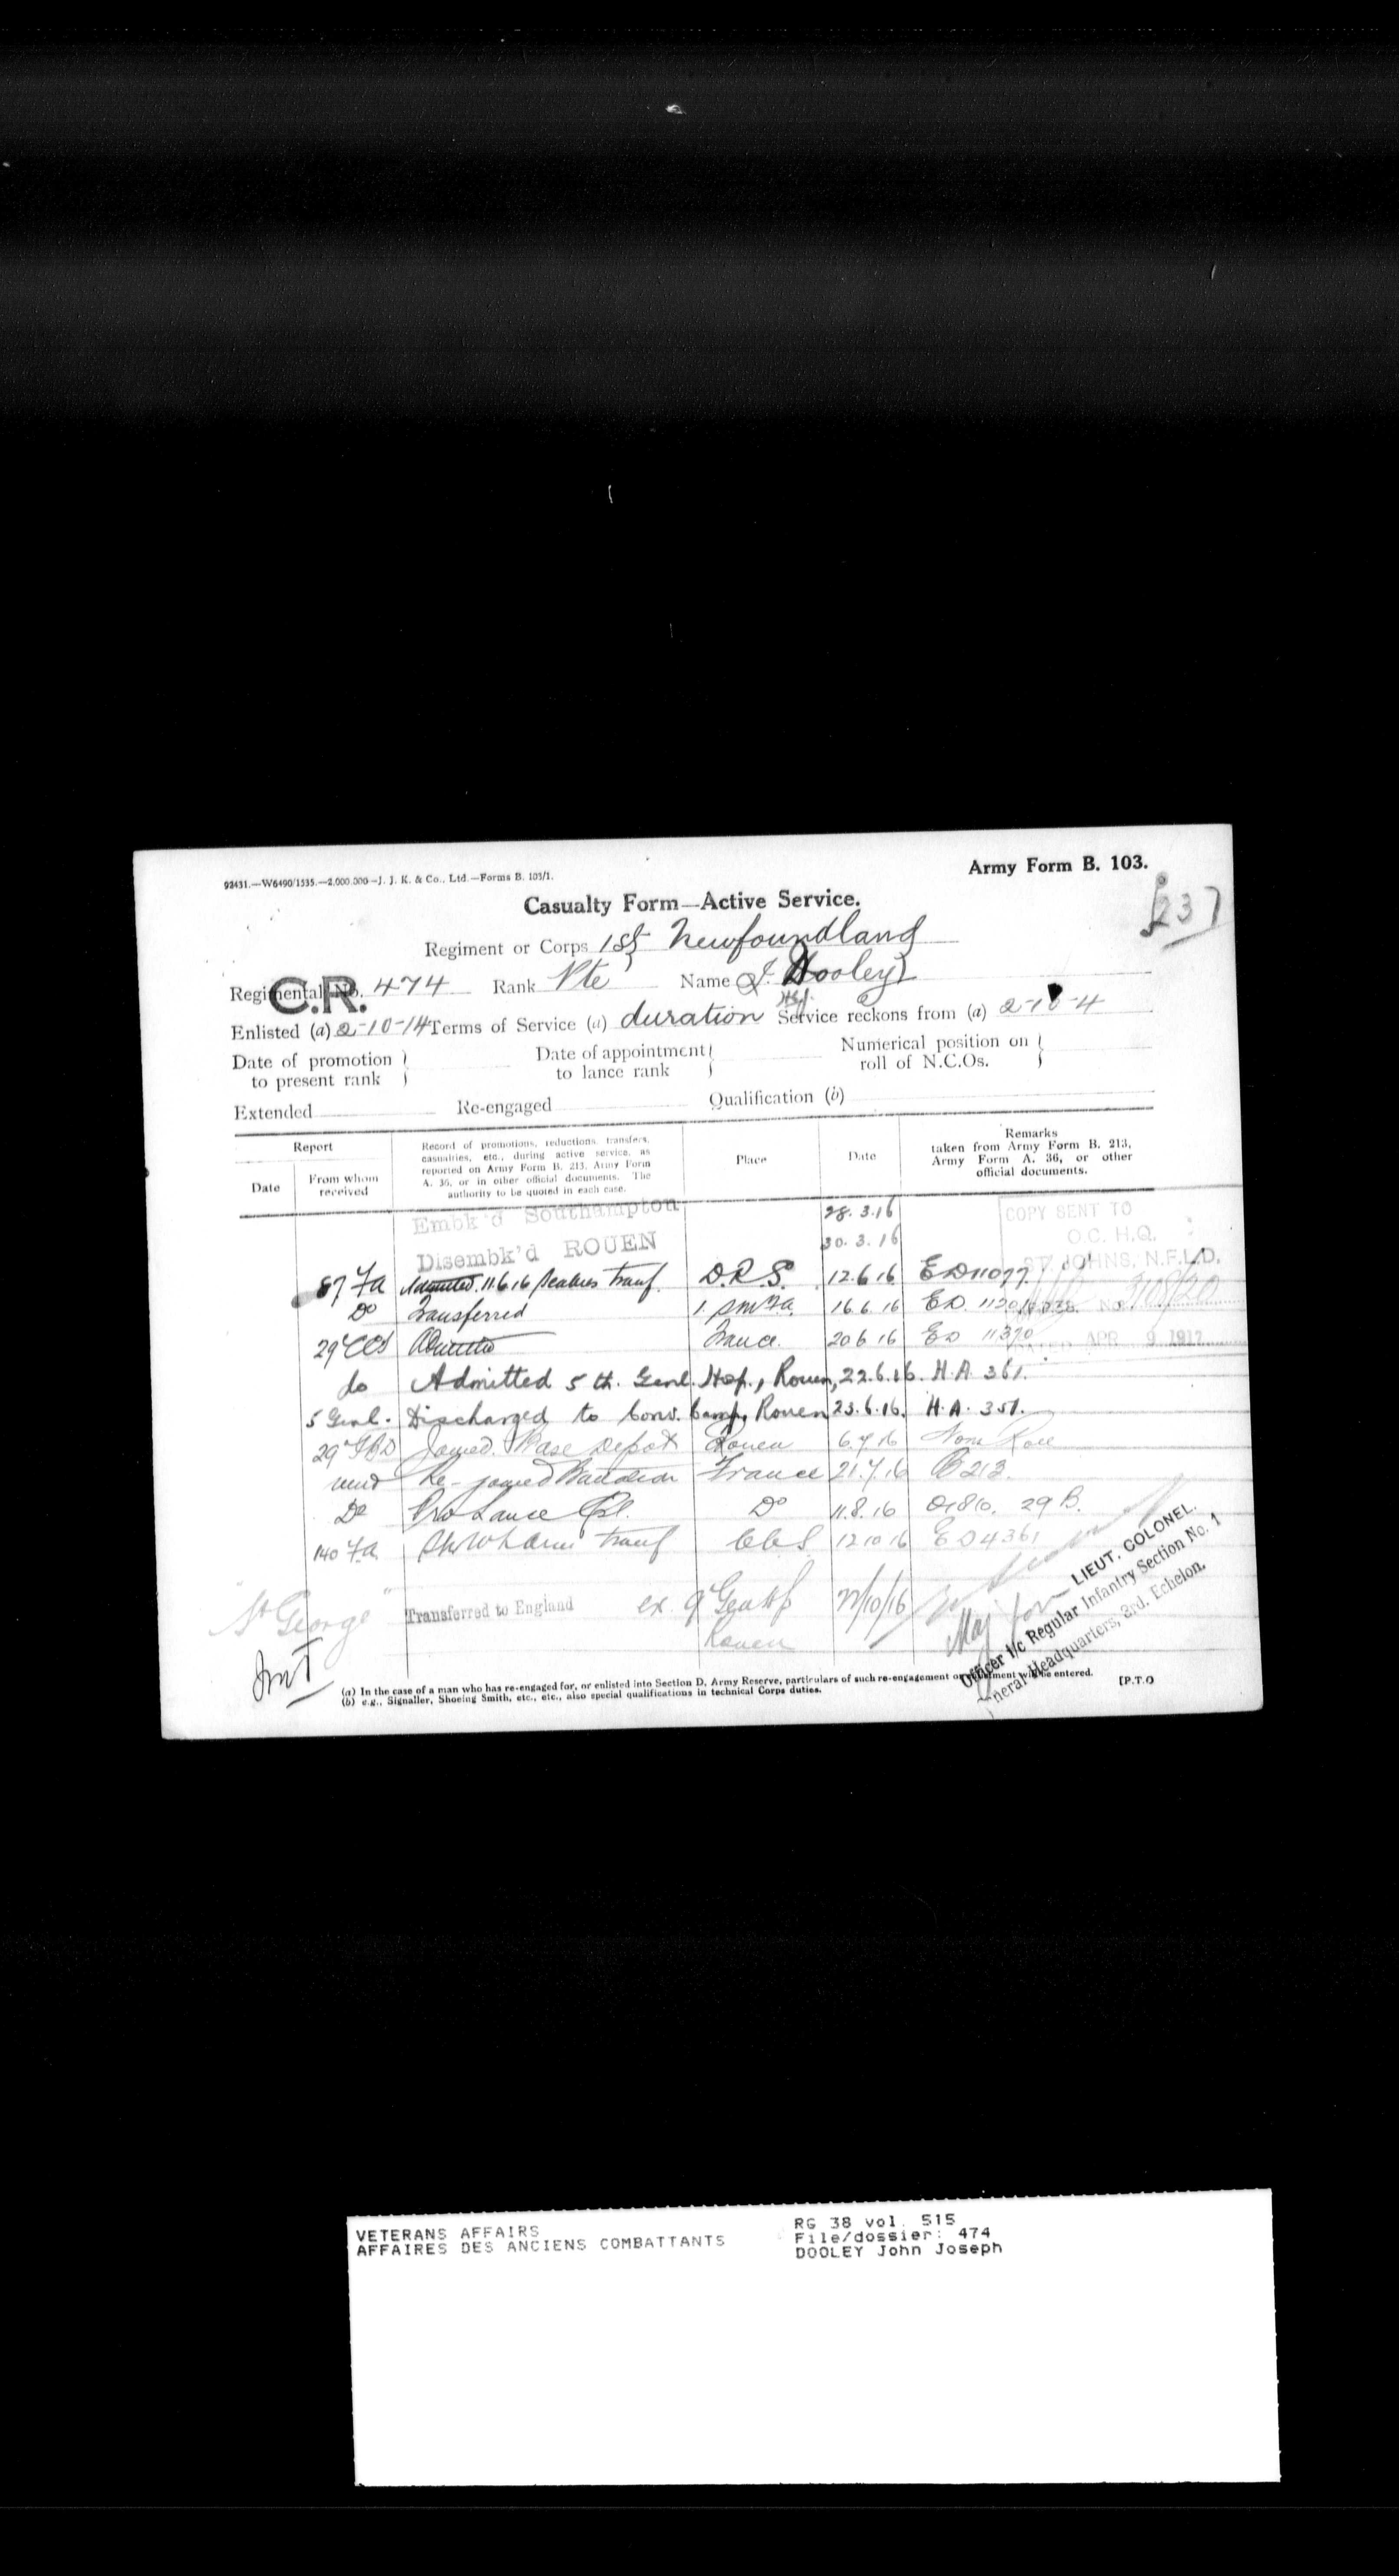 93431.—W6490/1535.—2,000,000—J. J. K. & Co., Ltd.—Forms B. 103/1.
Army Form B. 103.
237
Casualty Form—Active Service.
Regiment or Corps 1st Newfoundland
C.R.
Regimental No. 474 Rank Pte Name J. Dooley
Enlisted (a) 2-10-14 Terms of Service (a) duration Service reckons from (a) 2-10-4
Date of promotion to present rank
Date of appointment to lance rank
Numerical position on roll of N.C.Os.
Extended Re-engaged Qualification (b)
Report
Date
From whom received
Record of promotions, reductions, transfers, casualties, etc., during active service, as reported on Army Form B. 213, Army Form A. 36, or in other official documents. The authority to be quoted in each case.
Place
Date
Remarks taken from Army Form B. 213, Army Form A. 36, or other official documents.
Embk'd Southampton 28.3.16
Disembk'd ROUEN 30.3.16
COPY SENT TO
O.C. H.Q.
ST. JOHNS, N.F.L.D.
No. 3108/20
APR 9 1917
87 Fa Admitted 11.6.16 Scabies transf. D.R.S. 12.6.16 ED 11077
Do Transferred 16.6.16 ED
29 CCS Admitted France. 20 6 16 ED 11370
do Admitted 5 th. Genl. Hop., Rouen, 22.6.16. H.A. 361.
5 Genl. Discharged to Conv. Camp, Rouen 23.6.16. H.A. 351.
29 IBD Joined Base Depot Rouen 6.7.16 Nom Roll
Re-joined Battalion France 21.7.16 B213.
Do Pro Lance Cpl. Do 11.8.16 29 B.
140 Fa. transf CCS 12 10 16 ED 4361
"St George" Transferred to England ex. 9 Gen Hsp Rouen 27/10/16
Maj for LIEUT. COLONEL.
Officer I/c Regular Infantry Section No. 1
General Headquarters, 3rd. Echelon.
(a) In the case of a man who has re-engaged for, or enlisted into Section D, Army Reserve, particulars of such re-engagement or enlistment will be entered.
(b) e.g., Signaller, Shoeing Smith, etc., etc., also special qualifications in technical Corps duties.
[P.T.O
VETERANS AFFAIRS
AFFAIRES DES ANCIENS COMBATTANTS
RG 38 vol. 515
File/dossier: 474
DOOLEY John Joseph